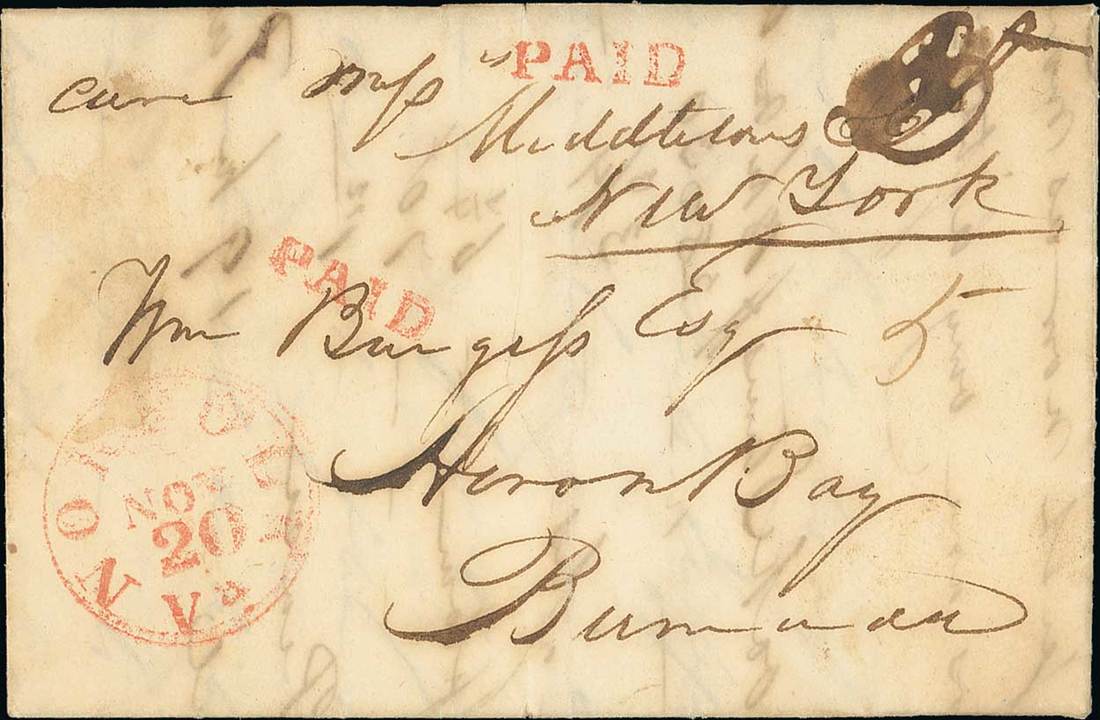 PAID
care Mess
Middletown & Co
New York
PAID
Wm Burgess Esq 5
Heron Bay
Bermuda
NORFOLK Va
NOV
20